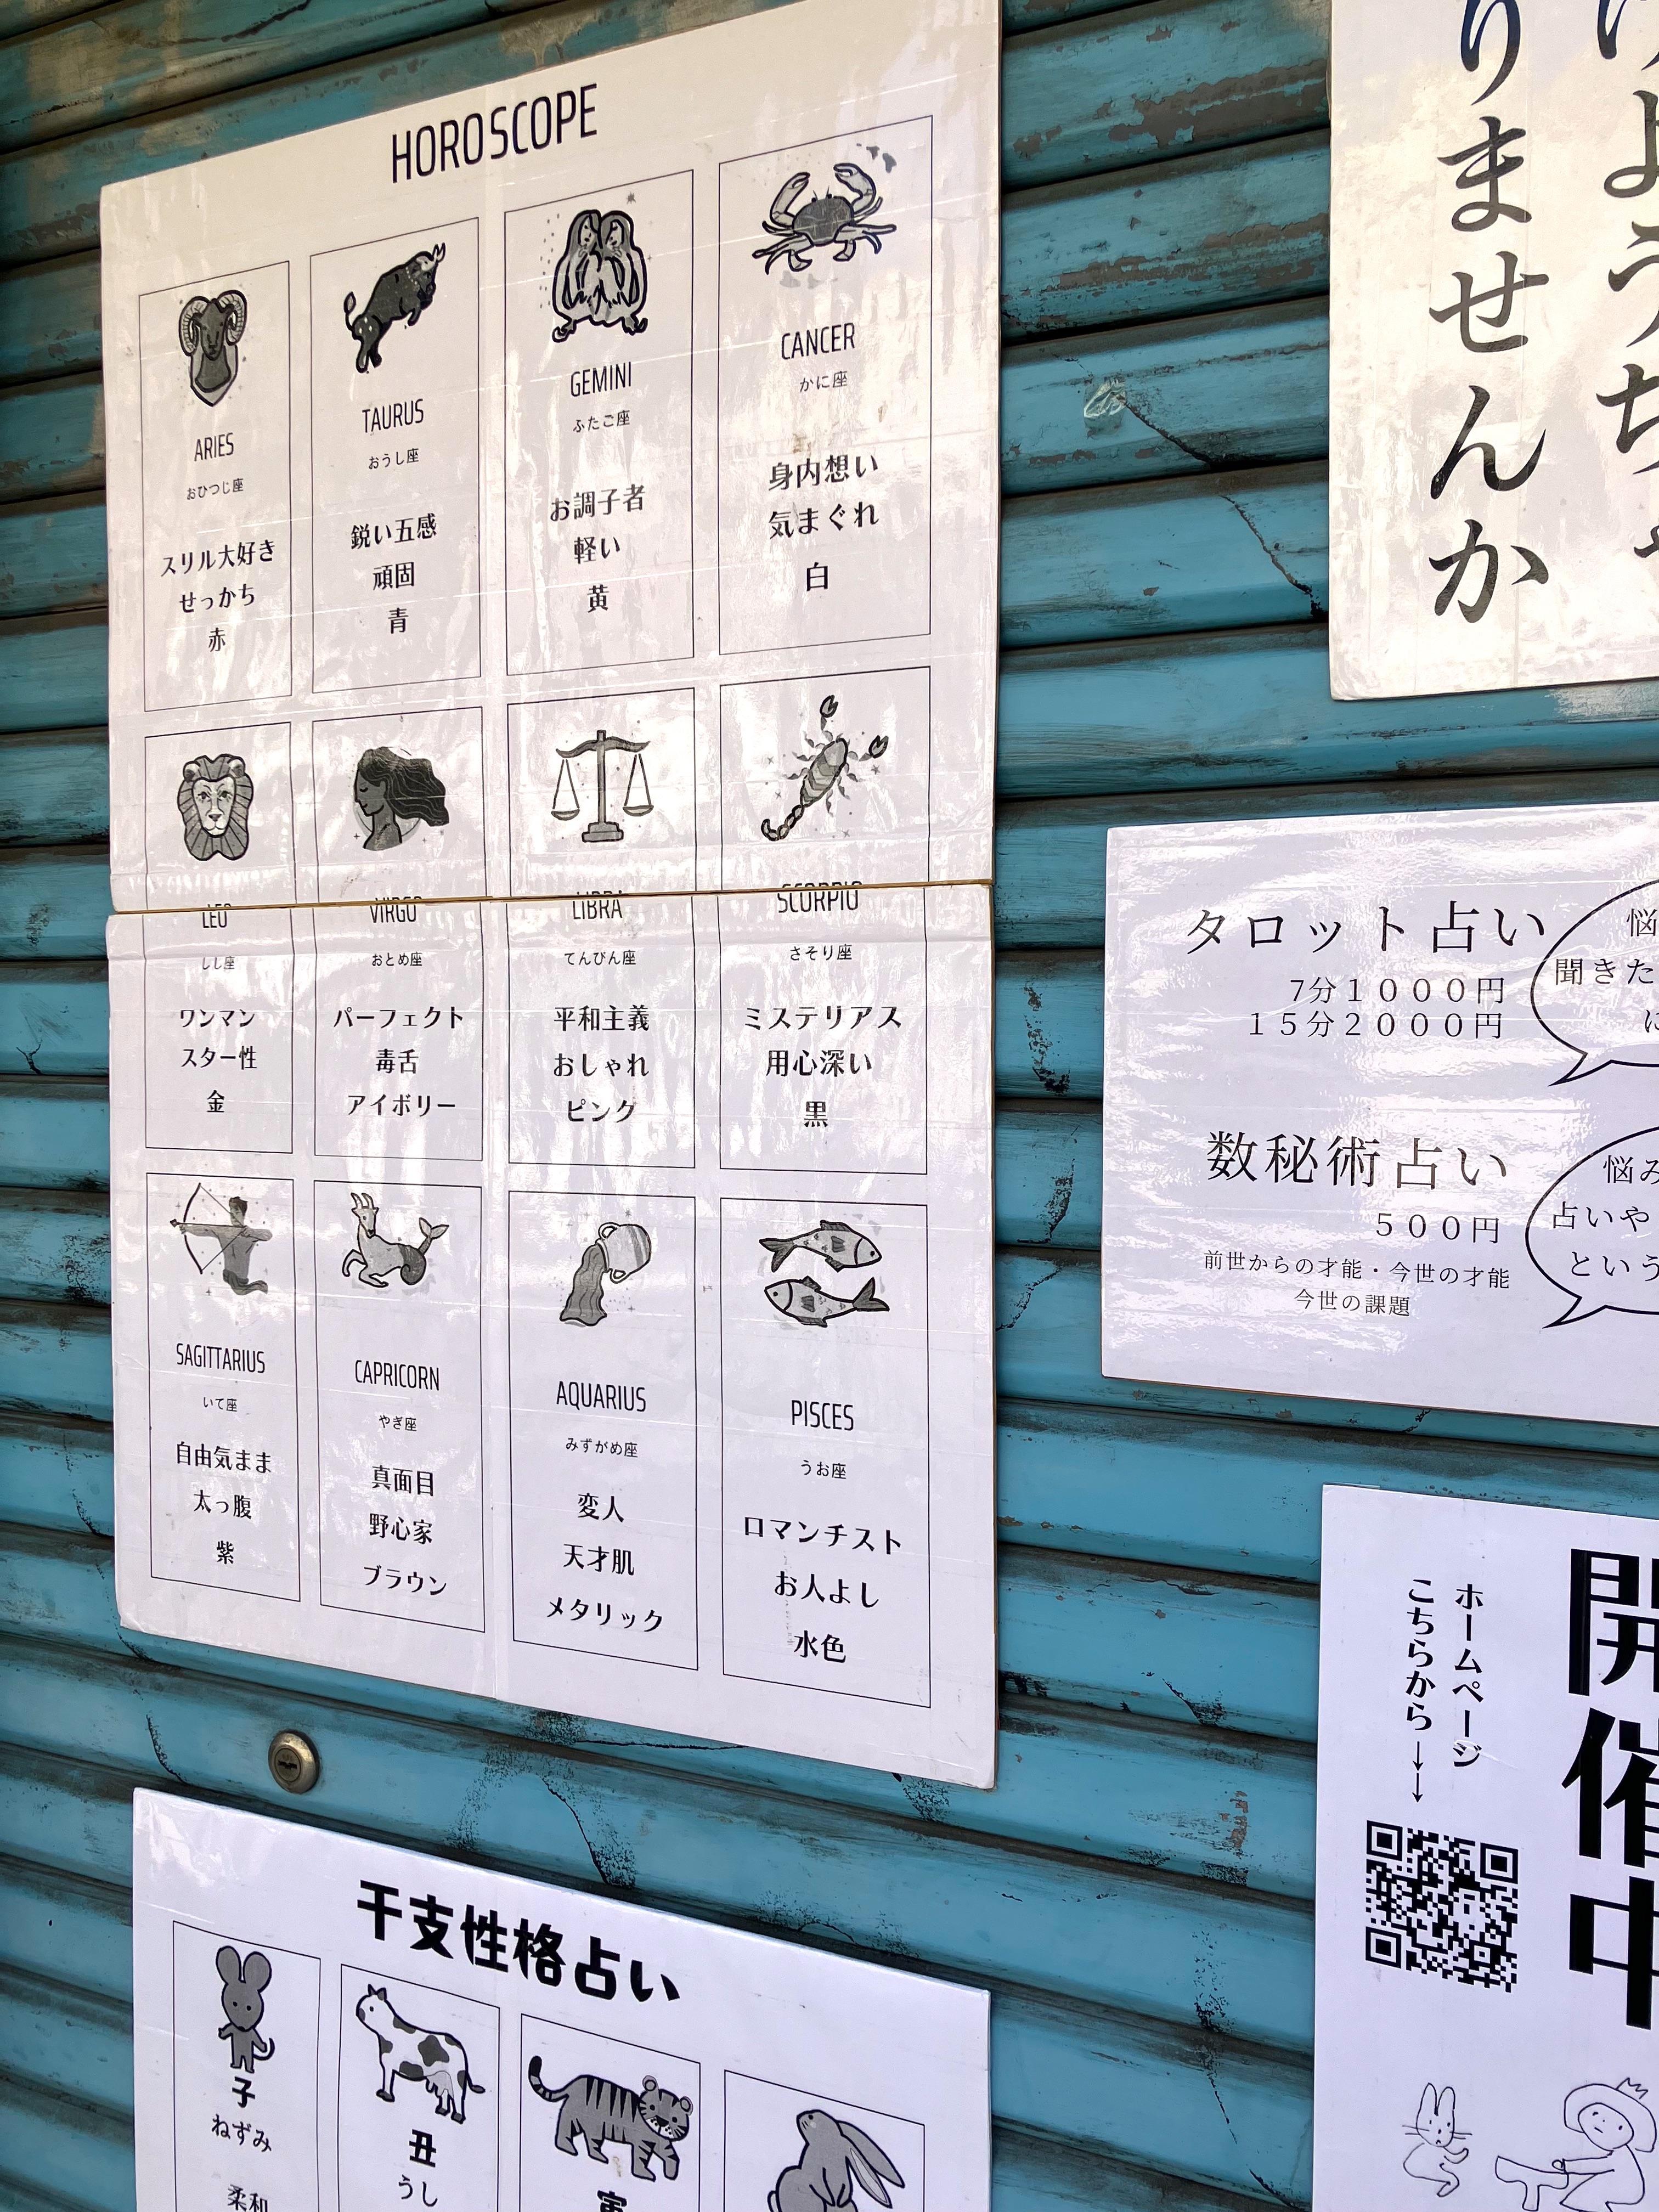 HOROSCOPE
ARIES
おひつじ座
スリル大好き
せっかち
赤
TAURUS
おうし座
鋭い五感
頑固
青
GEMINI
ふたご座
お調子者
軽い
黄
CANCER
かに座
身内想い
気まぐれ
白
LEO
しし座
ワンマン
スター性
金
VIRGO
おとめ座
パーフェクト
毒舌
アイボリー
LIBRA
てんびん座
平和主義
おしゃれ
ピンク
SCORPIO
さそり座
ミステリアス
用心深い
黒
SAGITTARIUS
いて座
自由気まま
太っ腹
紫
CAPRICORN
やぎ座
真面目
野心家
ブラウン
AQUARIUS
みずがめ座
変人
天才肌
メタリック
PISCES
うお座
ロマンチスト
お人よし
水色
りませんか
タロット占い
7分１０００円
１５分２０００円
悩
聞きた
に
数秘術占い
５００円
前世からの才能・今世の才能
今世の課題
悩み
占いや
という
開催中
ホームページ
こちらから→→
干支性格占い
子
ねずみ
柔和
丑
うし
寅